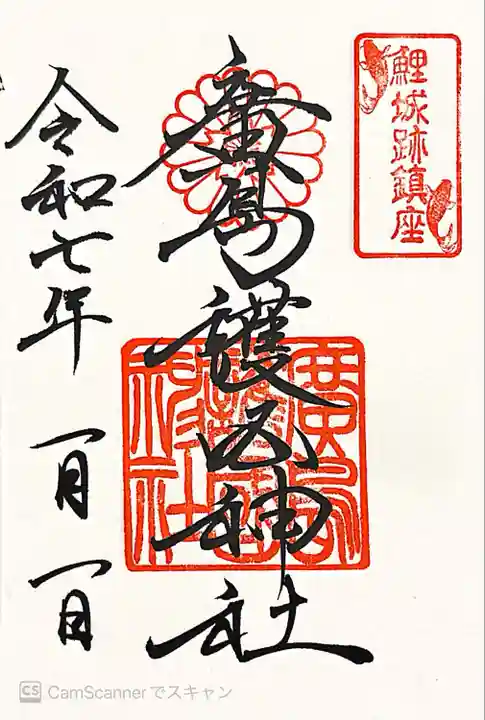 鯉城跡鎮座
廣島護國神社
令和七年 一月一日
廣島護國神社
CS CamScannerでスキャン